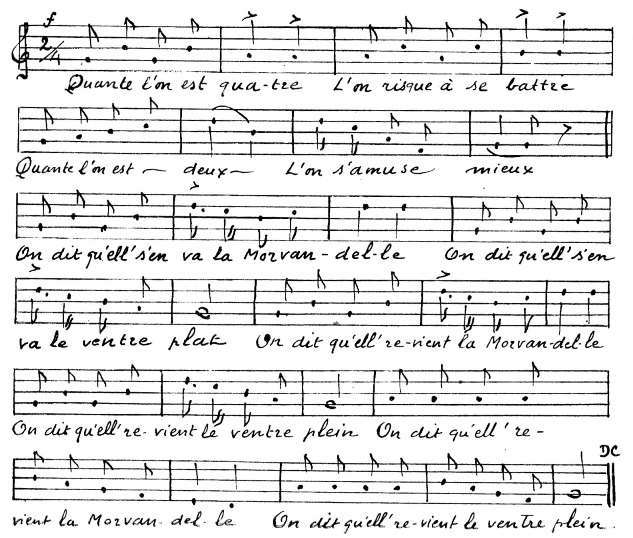 f
2/4
Quante l'on est qua-tre L'on risque à se battre
Quante l'on est — deux — L'on s'amuse mieux
On dit qu'ell's'en va la Morvan-del-le On dit qu'ell's'en
va le ventre plat On dit qu'ell're-vient la Morvan-del-le
On dit qu'ell're-vient le ventre plein On dit qu'ell're-
DC
vient la Morvan-del-le On dit qu'ell're-vient le ventre plein.